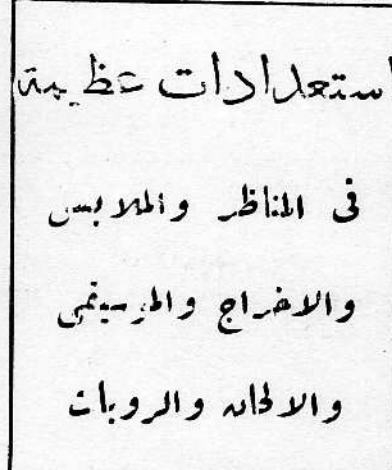 استعدادات عظيمة
فى المناظر والملابس
والاخراج والموسيقى
والالحان والروبات